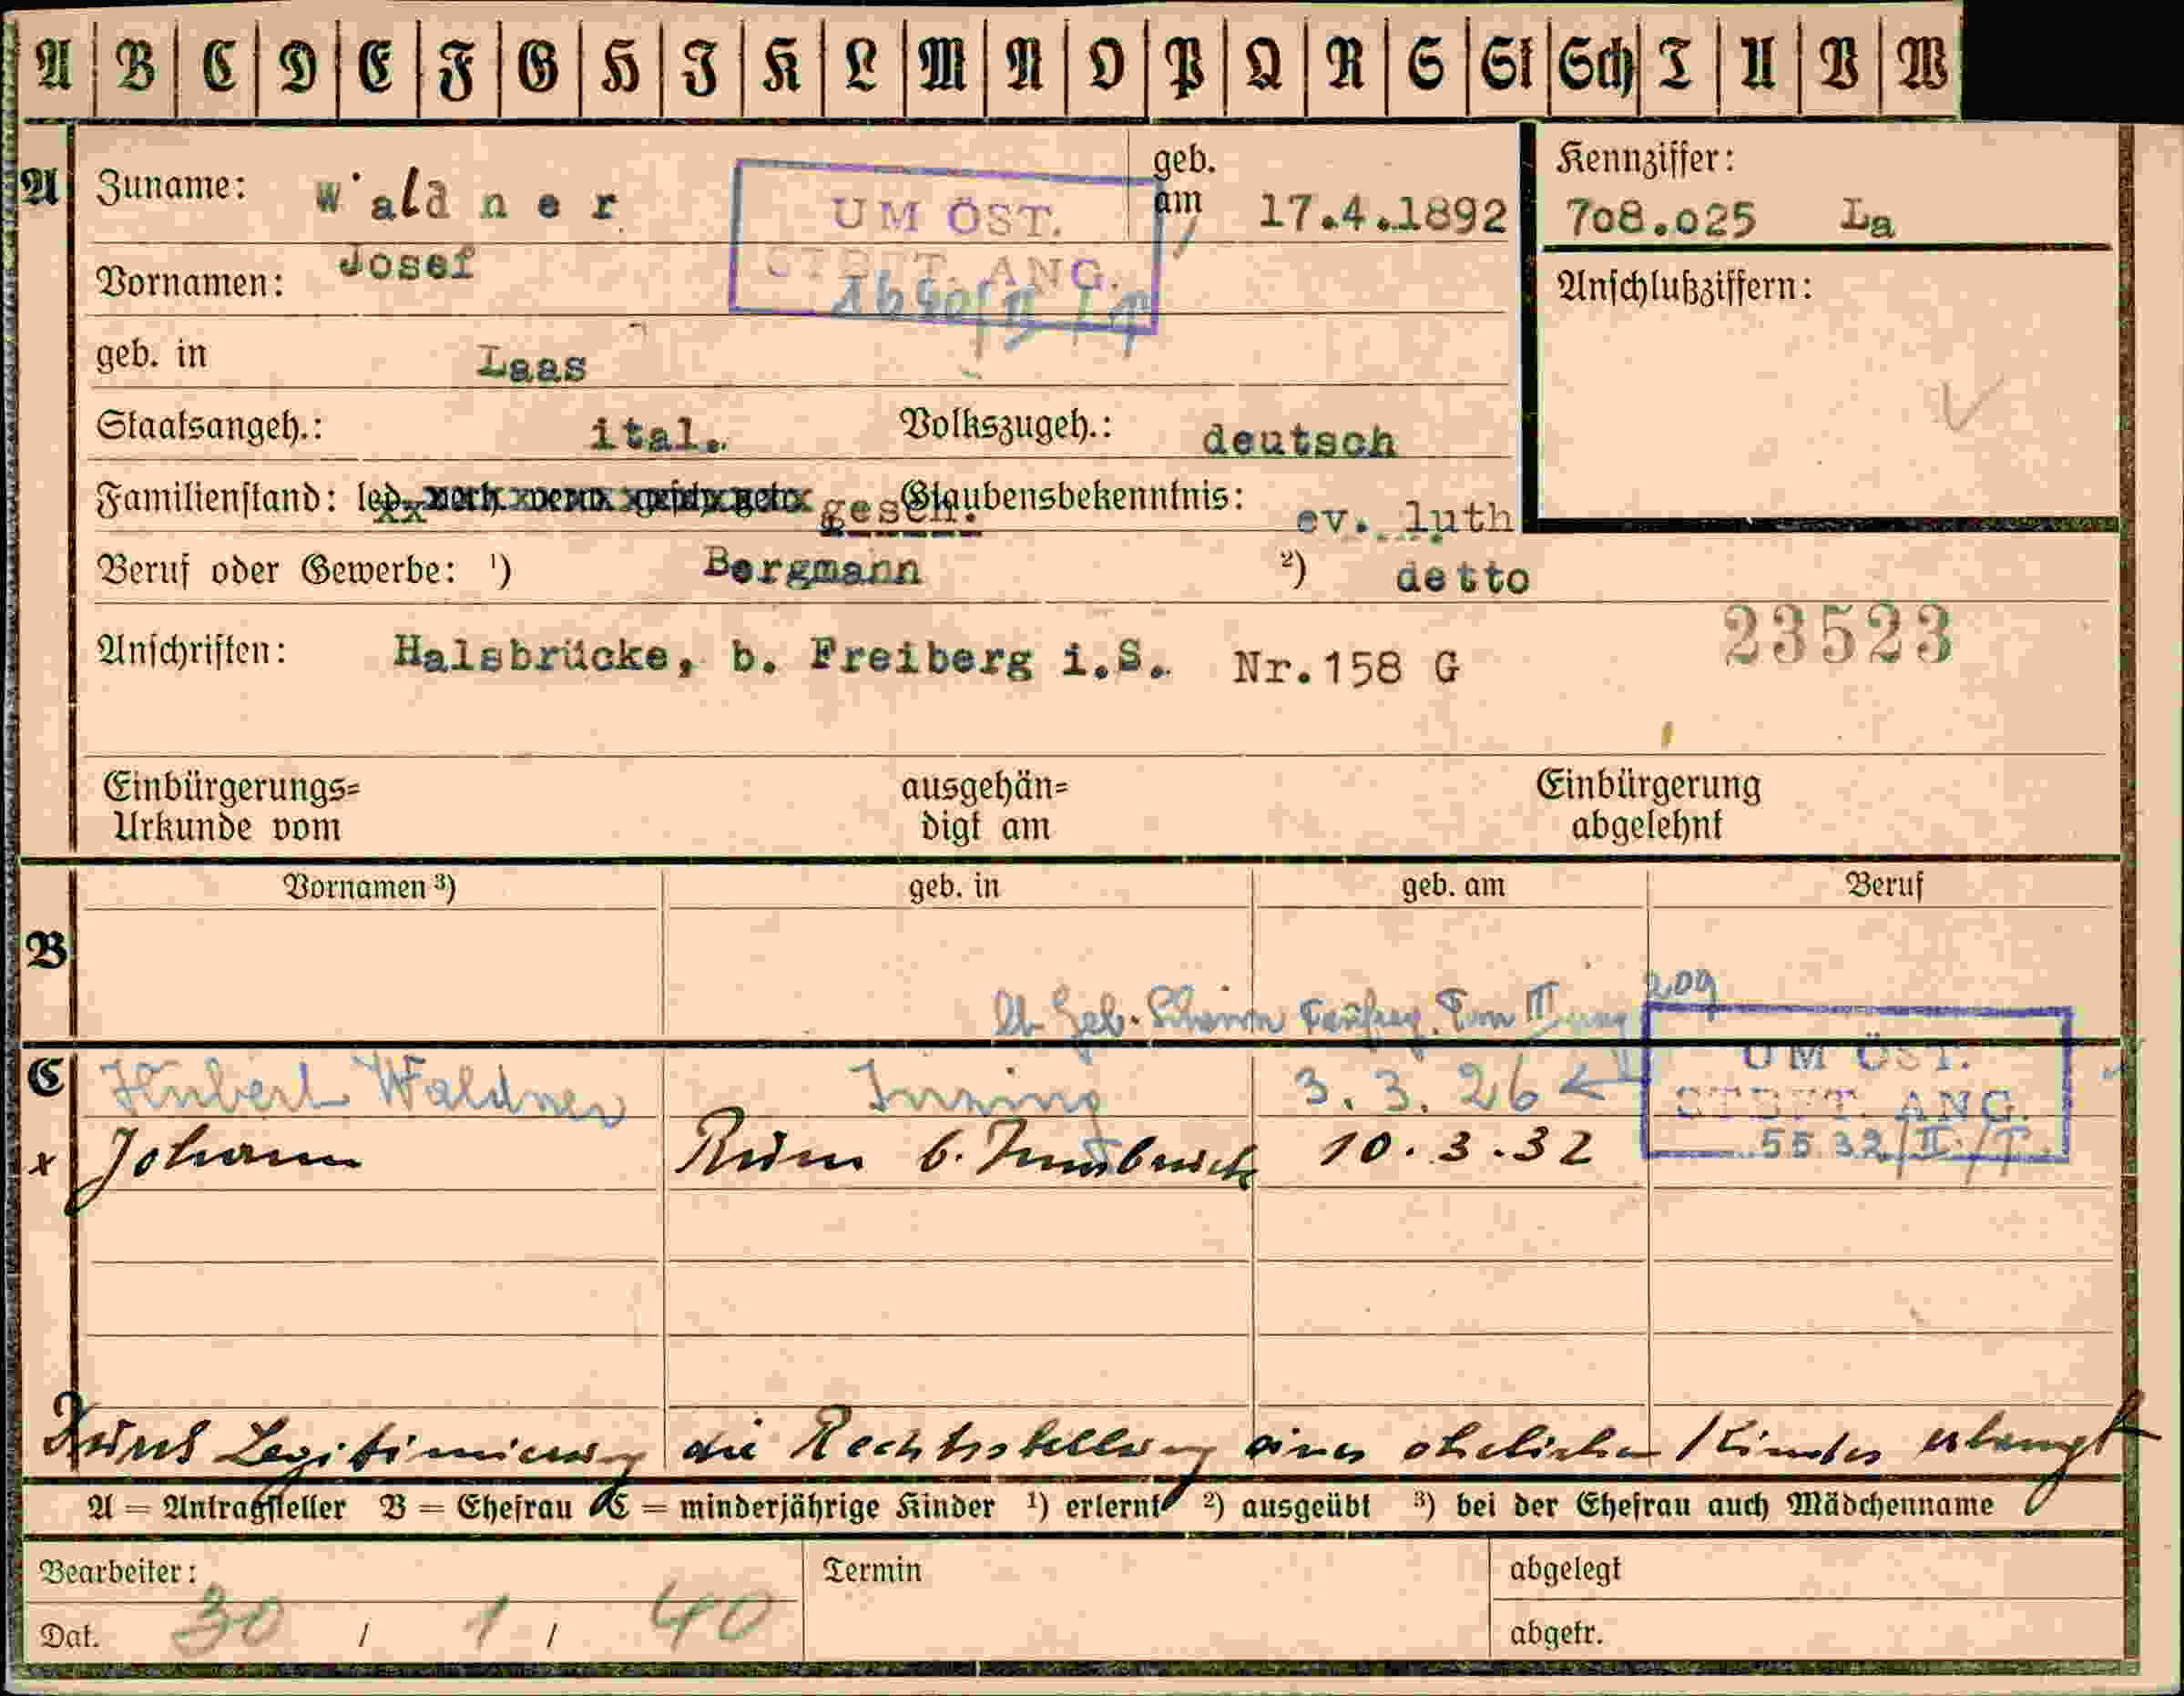 A B C D E F G H I K L M N O P Q R S St Sch T U V W
A Zuname: Waldner geb. am 17.4.1892 Kennziffer: 708.025 La
UM ÖST. STBFT. ANG.
Vornamen: Josef Anschlußziffern:
geb. in Laas
Staatsangeh.: ital. Volkszugeh.: deutsch
Familienstand: led. verh. verw. gesch. getr. gesch. Glaubensbekenntnis: ev. luth
Beruf oder Gewerbe: ¹) Bergmann ²) detto
Anschriften: Halsbrücke, b. Freiberg i.S. Nr.158 G 23523
Einbürgerungs= ausgehän= Einbürgerung
Urkunde vom digt am abgelehnt
Vornamen ³) geb. in geb. am Beruf
B
209
UM ÖST.
STBFT. ANG.
5532/II/T
C Hubert Waldner 3.3.26
x Johann Rum b. Innsbruck 10.3.32
Durch Legitimierung die Rechtsstellung eines ehelichen Kindes erlangt
A = Antragsteller B = Ehefrau C = minderjährige Kinder ¹) erlernt ²) ausgeübt ³) bei der Ehefrau auch Mädchenname
Bearbeiter: Termin abgelegt
Dat. 30 / 1 / 40 abgetr.